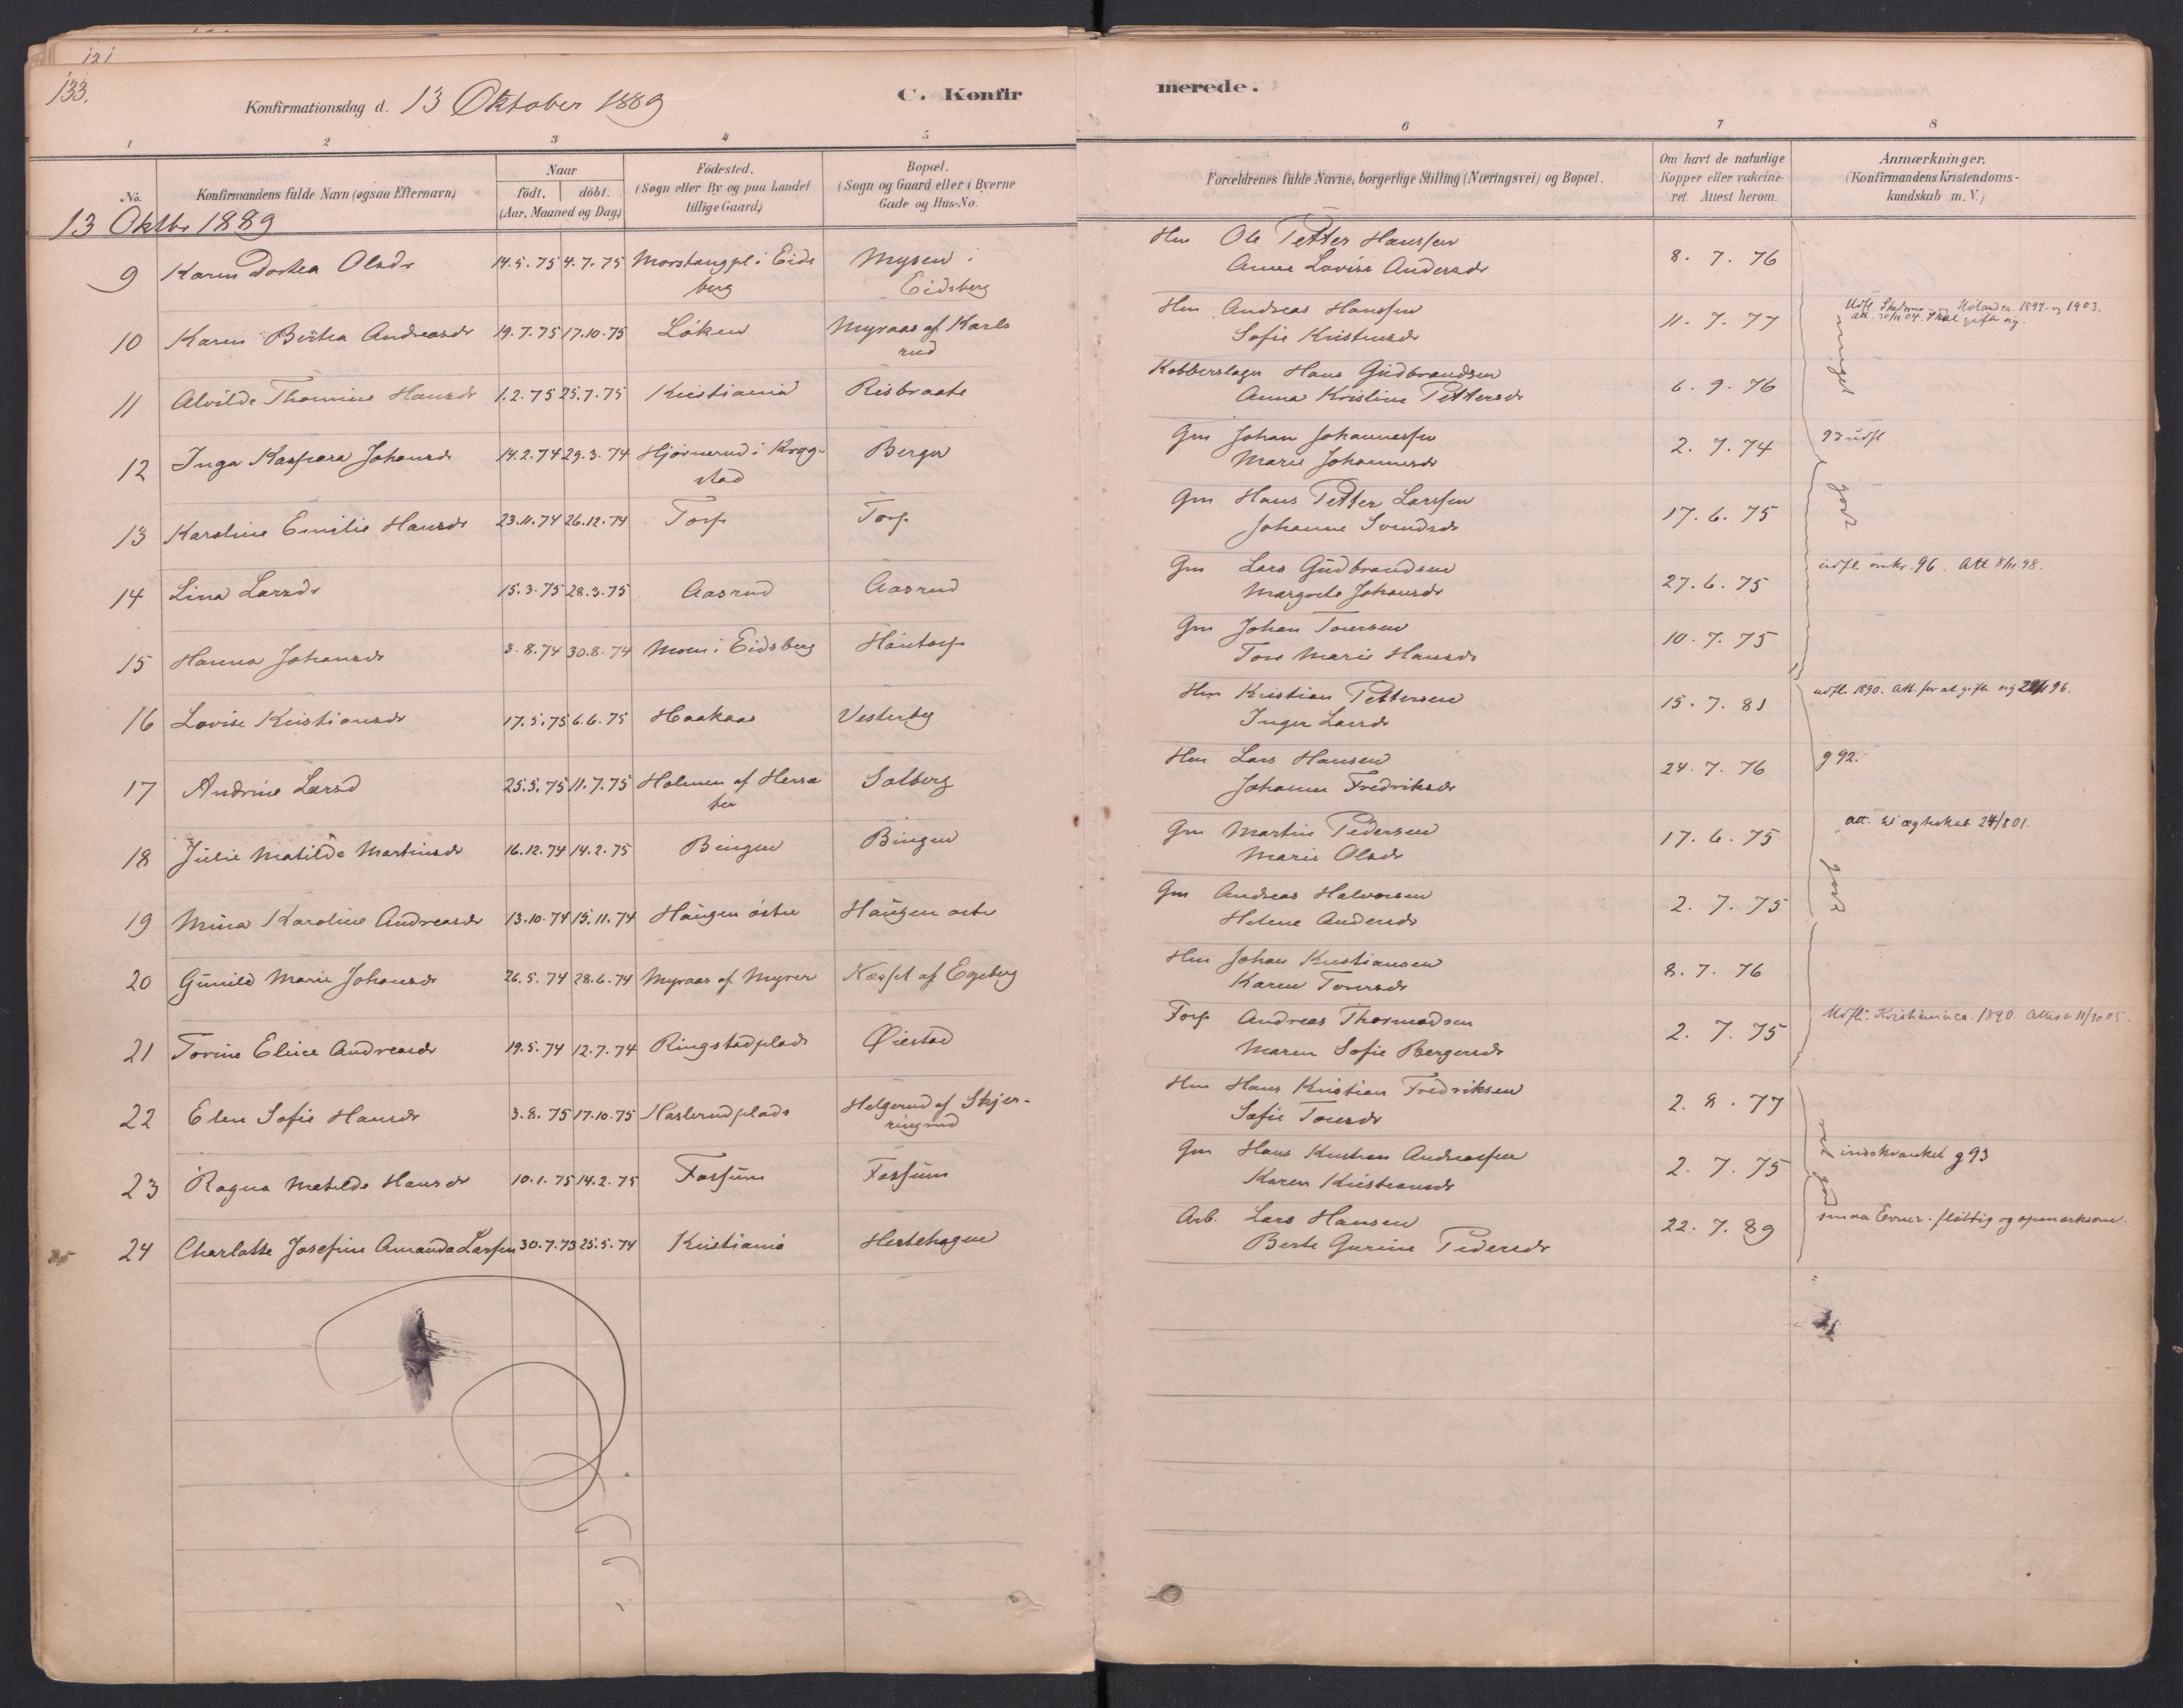 121
133.
Konfirmationsdag d. 13 Oktober 1889
C. Konfirmerede.
1 2 3 4 5 6 7 8
No.
Konfirmandens fulde Navn (ogsaa Efternavn)
Naar
födt. döbt.
(Aar, Maaned og Dag)
Födested.
(Sogn eller By og paa Landet
tillige Gaard)
Bopæl.
(Sogn og Gaard eller i Byerne
Gade og Hus-No.
Forældrenes fulde Navne, borgerlige Stilling (Næringsvei) og Bopæl.
Om havt de naturlige
Kopper eller vakcine-
ret. Attest herom.
Anmærkninger.
(Konfirmandens Kristendoms-
kundskab m. V.)
13 Oktbr 1889
9 Karen Dortea Olsdr 14.5.75 4.7.75 Morstangpl i Eids Mysen i Hm Ole Petter Hanssen 8. 7. 76
berg Eidsberg Anne Lovise Andersdr
10 Karen Bertea Andreasdr 19.7.75 17.10.75 Löken Myraas af Karls Hm Andreas Hanssen 11. 7. 77 Udfl. Skedsmo og Urland ca. 1897 og 1903.
rud Sofie Kristensdr att. 30/11 04. Skal gifte sig.
meget
11 Alvilde Thomine Hansdr 1.2.75 25.7.75 Kristiania Risbraate Kobberslager Hans Gudbrandsen 6. 9. 76
Anna Kristine Pettersdr
12 Inga Kaspara Johansdr 14.2.74 29.3.74 Hjörnerud i Krog- Berger Gm Johan Johannessen 2. 7. 74 93 udfl
stad Marie Johannesdr
godt
13 Karoline Emilie Hansdr 23.11.74 26.12.74 Torp Torp Gm Hans Petter Larssen 17. 6. 75
Johanne Svendsdr
14 Lina Larsdr 15.3.75 28.3.75 Aasrud Aasrud Gm Lars Gudbrandsen 27. 6. 75 udfl. omkr. 96. Att 8/11 98.
Margrete Johansdr
15 Hanna Johansdr 3.8.74 30.8.74 Moen i Eidsberg Håntorp Gm Johan Toversen 10. 7. 75
Tore Marie Hansdr
16 Lovise Kristiansdr 17.5.75 6.6.75 Haakaas Vesterby Hm Kristian Pettersen 15. 7. 81 udfl. 1890. Att. for at gifte sig 96.
Inger Larsdr
17 Andrine Larsd 25.5.75 11.7.75 Holmen af Hersæ Solberg Hm Lars Hansen 24. 7. 76 g 92.
ter Johanne Fredriksdr
18 Julie Matilde Martinsdr 16.12.74 14.2.75 Bingen Bingen Gm Martin Pedersen 17. 6. 75 att. til ægteskab 24/8 01.
Marie Olsdr
godt
19 Mina Karoline Andreasdr 13.10.74 15.11.74 Haugen östre Haugen östr Gm Andreas Halvorsen 2. 7. 75
Helene Andersdr
20 Gunild Marie Johansdr 26.5.74 28.6.74 Myraas af Myrer Næspl af Egeberg Hm Johan Kristiansen 8. 7. 76
Karen Toversdr
21 Torine Elise Andreasdr 19.5.74 12.7.74 Ringstadplads Øiestad Forp Andreas Thormodsen 2. 7. 75 Udfl. Kristiania ca. 1890. Attest 11/10 05.
Maren Sofie Bergersdr
22 Elen Sofie Hansdr 3.8.75 17.10.75 Haslerudplads Helgerud af Skjer- Hm Hans Kristian Fredriksen 2. 8. 77
ringrud Sofie Toversdr
23 Ragna Matilde Hansdr 10.1.75 14.2.75 Fossum Fossum Gm Hans Kristian Andreassen 2. 7. 75 indskrænket g 93
Karen Kristiansdr
24 Charlotte Josefine Amanda Larssen 30.7.73 25.5.74 Kristiania Hestehagen Arb. Lars Hansen 22. 7. 89 smaa Evner. flittig og opmærksom.
Berte Gurine Pedersdr